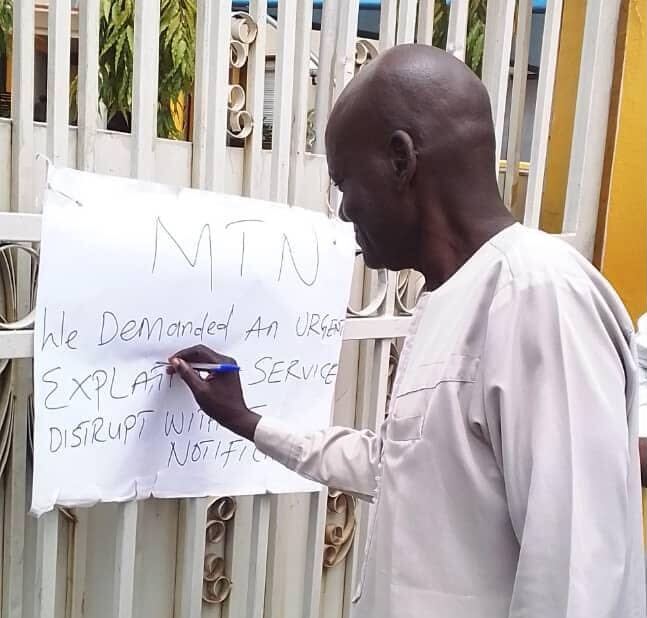 MTN
We Demanded An URGEN
EXPLA SERVICE
DISTRUPT WITH
NOTIFIC